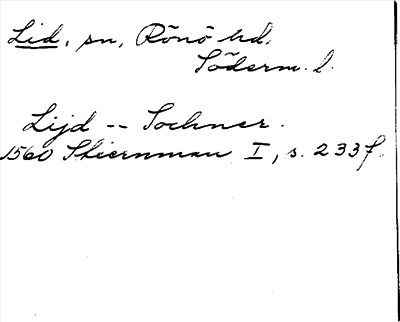 Lid, sn, Rönö hd,
Söderm. l.
Lijd -- Sochner.
1560 Stiernman I, s. 233f.